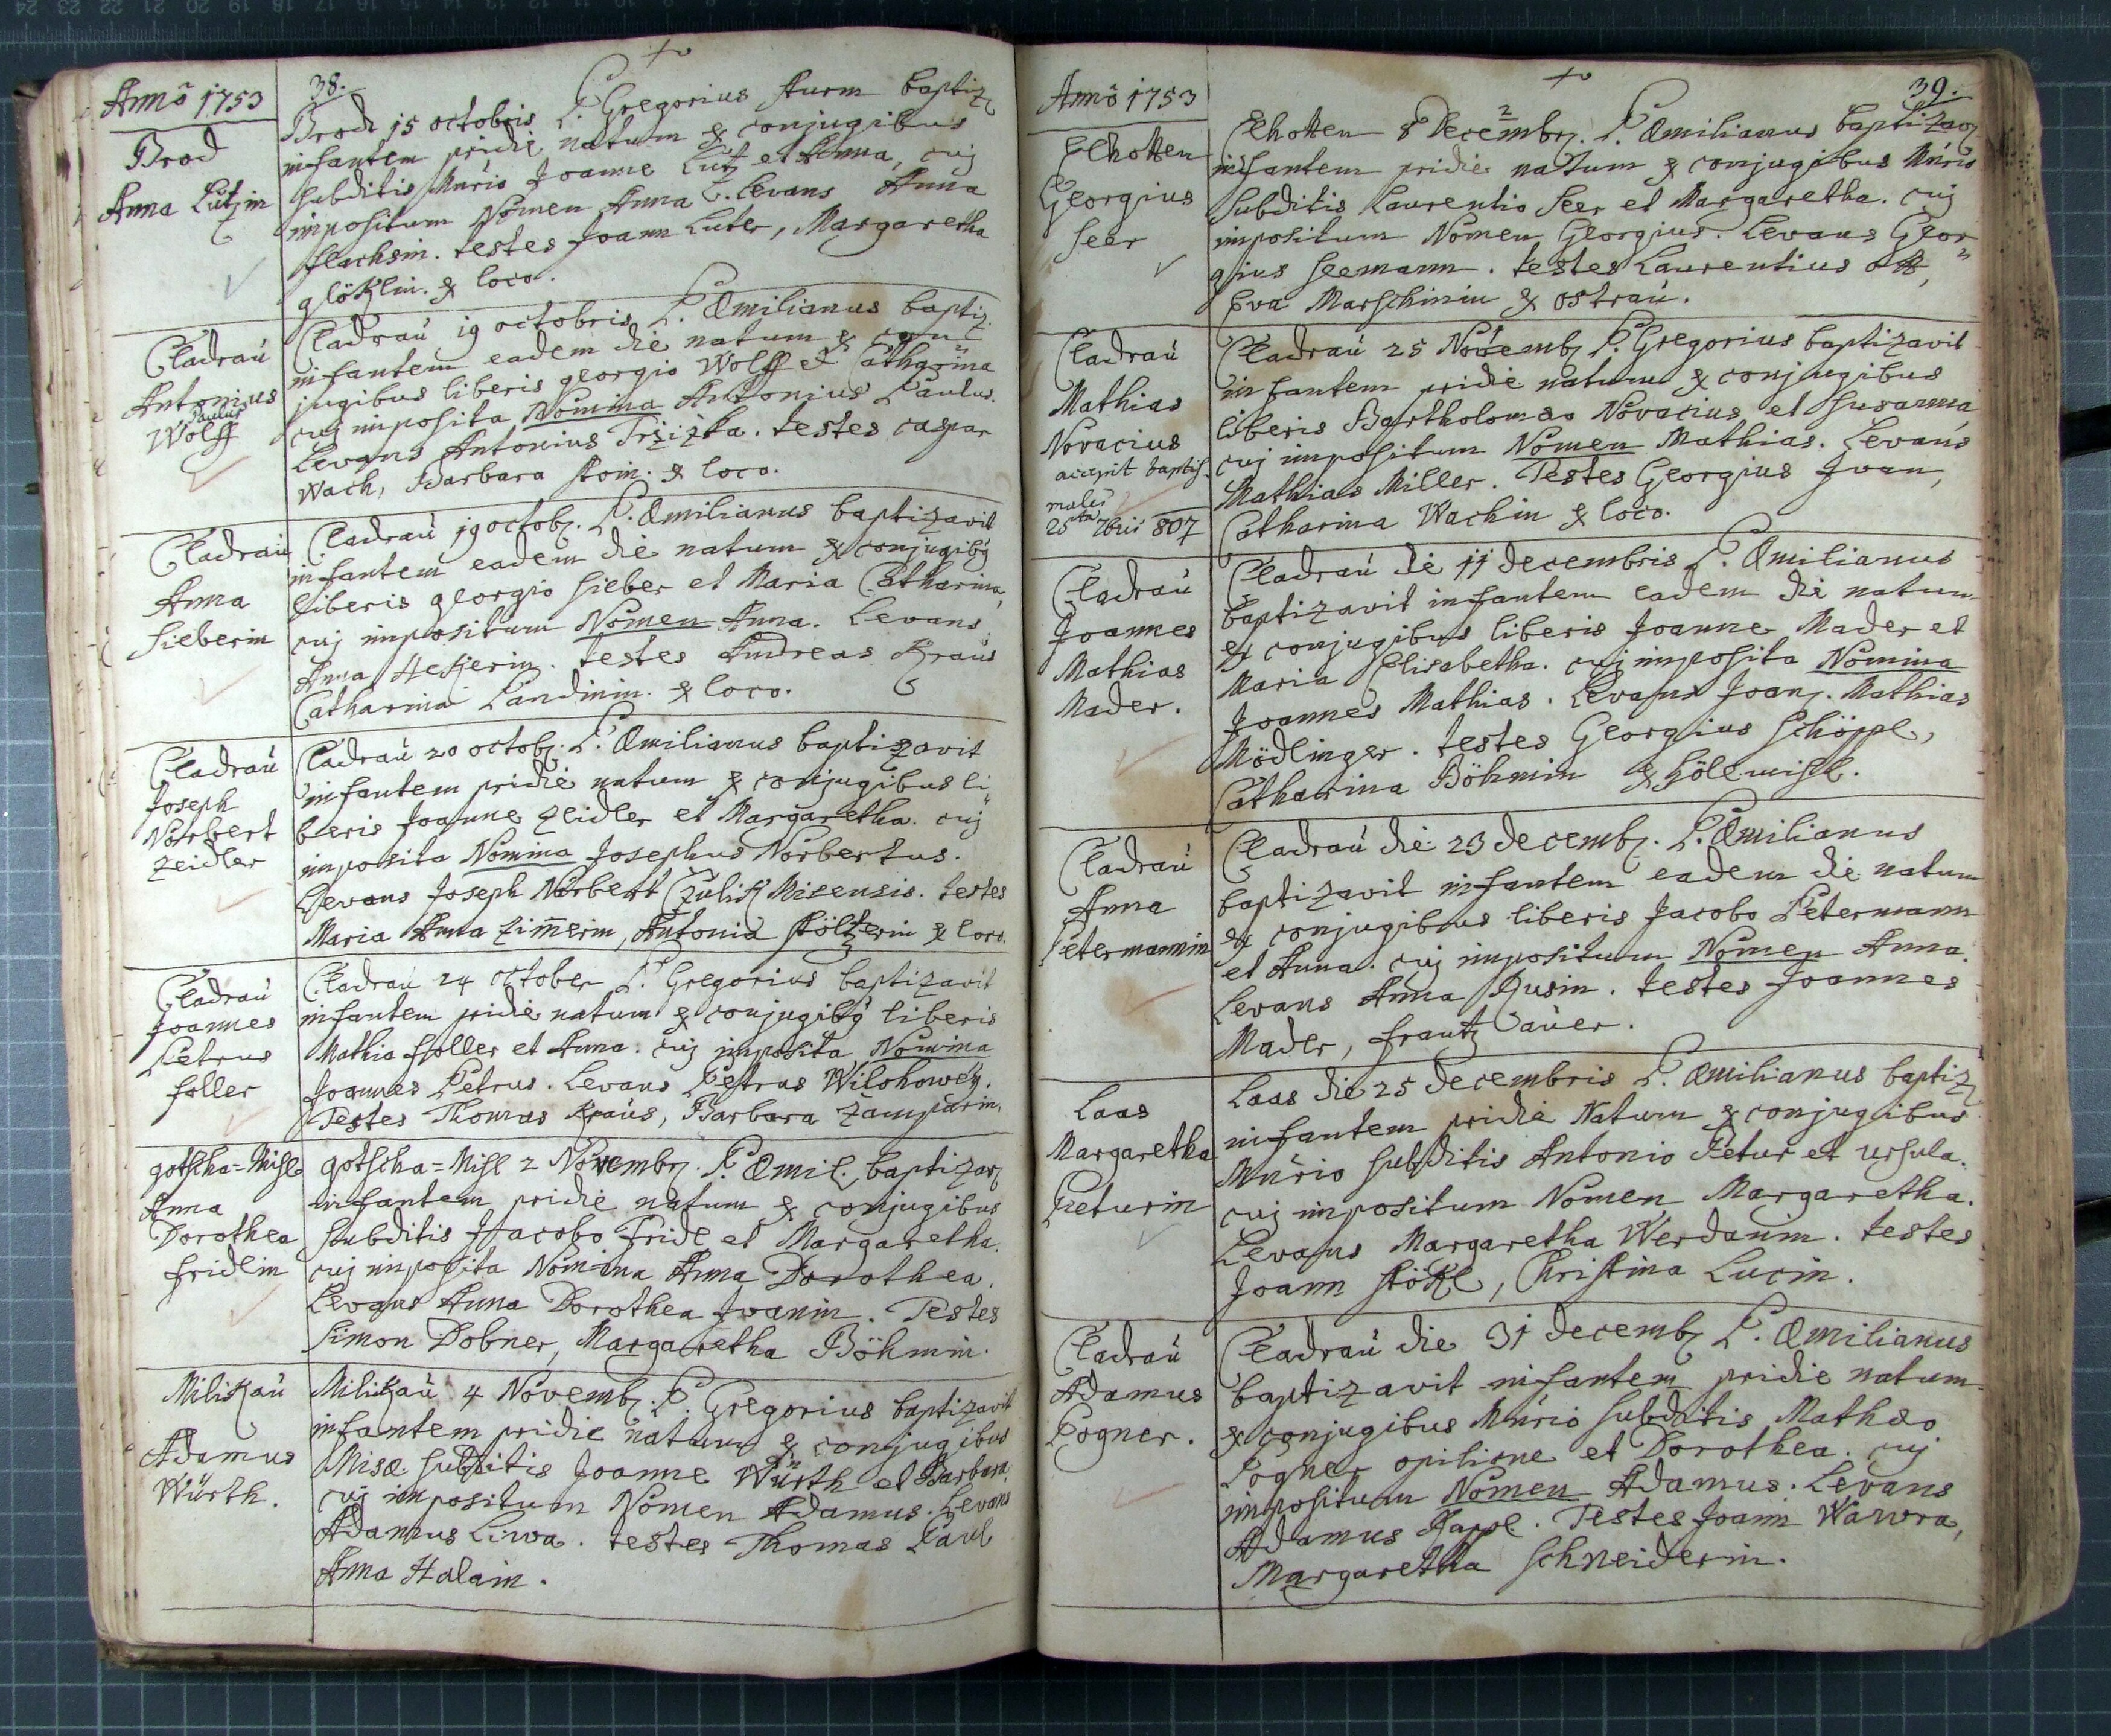 Annô 1753
38.
Brod
Anna Lútzin
Brod 15 octobris P. Gregorius Sturm baptiz.
infantem pridiè natum ex conjugibus
subditis Murio Joanne Lutz et Anna, cuj
impositum Nomen Anna. Levans Anna
flachsin. testes Joann Luter, Margaretha
glöklin. ex loco.
Cladraú
Antonius
Paulus
Wolff
Cladraú 19 octobris P. Æmilianus baptiz.
infantem eadem diè natum ex con=
jugibus liberis georgio Wolff et Catharina
cuj imposita Nomina Antonius Paulus.
Levans Antonius Trziztka. testes caspar
Wach, Barbara Stoin. ex loco.
Cladraú
Anna
Sieberin
Cladraú 19 octob. P. Æmilianus baptizavit
infantem eadem diè natum ex conjugibg
liberis georgio Sieber et Maria Catharina,
cuj impositum Nomen Anna. Levans
Anna Hekerin. testes Andreas Kraús
Catharina Landinin. ex loco.
Cladraú
Joseph
Norbert
Zeidler
Cladraú 20 octob. P. Æmilianus baptizavit
infantem pridiè natum ex conjugibus li=
beris Joanne Zeidler et Margaretha. cuj
imposita Nomina Josephus Norbertus.
Levans Joseph Norbert Czulik Misensis. testes
Maria Anna Zimerin, Antonia Stöltzerin ex loco.
Cladraú
Joannes
Petrus
foller
Cladraú 24 october P. Gregorius baptizavit
infantem pridiè natum ex conjugibg liberis
Mathia foller et Anna. cuj imposita Nomina
Joannes Petrus. Levans Petrus Wilohoweÿ.
Testes Thomas Kraús, Barbara Zamparin.
gotscha=Mihl
Anna
Dorothea
fridlin
gotscha=Mihl 2 Novembr. P. Æmil. baptizav
infantem pridiè natum ex conjugibus
subditis Jacobo fridl et Margaretha.
cuj imposita Nomina Anna Dorothea.
Levans Anna Dorothea Jvanin. Testes
Simon Dobner, Margaretha Böhmin.
Milikaú
Adamus
Würth.
Milikaú 4 Novemb. P. Gregorius baptizavit
infantem pridiè natum ex conjugibus
Misæ subditis Joanne Würth et Barbara.
cuj impositum Nomen Adamus. Levans
Adamus Liwa. testes Thomas Paul
Anna Halain.
Annô 1753
39.
Elhotten
Georgius
Seer
Elhotten 8 Decembr. P. Æmilianus baptizav
infantem pridiè natum ex conjugibus Múrio
Subditis Laurentio Seer et Margaretha. cuj
impositum Nomen Georgius. Levans Geor=
gius Seemann. testes Laurentius ott,
Eva Marschinin ex ostraú.
Cladraú
Mathias
Novacius
accepit baptis=
males
25ta 7bris 807
Cladraú 25 Novemb. P. Gregorius baptizavit
infantem pridiè natum ex conjugibus
liberis Bartholomæo Novacius et Susanna,
cuj impositum Nomen Mathias. Levans
Mathias Miller. Testes Georgius Jvan,
Catharina Wachin ex loco.
Cladraú
Joannes
Mathias
Mader.
Cladraú diè 11 decembris P. Æmilianus
baptizavit infantem eadem diè natum
ex conjugibus liberis Joanne Mader et
Maria Elisabetha. cuj imposita Nomina
Joannes Mathias. Levans Joan. Mathias
Mödlinger. testes Georgius Schöppl,
Catharina Böhmin ex Hölemihl.
Cladraú
Anna
Petermannin
Cladraú diè 23 decemb. P. Æmilianus
baptizavit infantem eadem diè natum
ex conjugibus liberis Jacobo Petermann
et Anna. cuj impositum Nomen Anna.
Levans Anna Rusin. testes Joannes
Mader, frantz aúer.
Laas
Margaretha
Peturin
Laas diè 25 decembris P. Æmilianus baptiz
infantem pridiè Natum ex conjugibus
Múrio subditis Antonio Petur et Ursula.
cuj impositum Nomen Margaretha.
Levans Margaretha Werdanin. testes
Joann Stökl, Christina Lucin.
Cladraú
Adamus
Pogner.
Cladraú diè 31 decemb. P. Æmilianus
baptizavit infantem pridiè natum
ex conjugibus Múrio subditis Mathæo
Pogner opilione et Dorothea. cuj
impositum Nomen Adamus. Levans
Adamus Kappl. Testes Joann Wawra,
Margaretha Schneiderin.